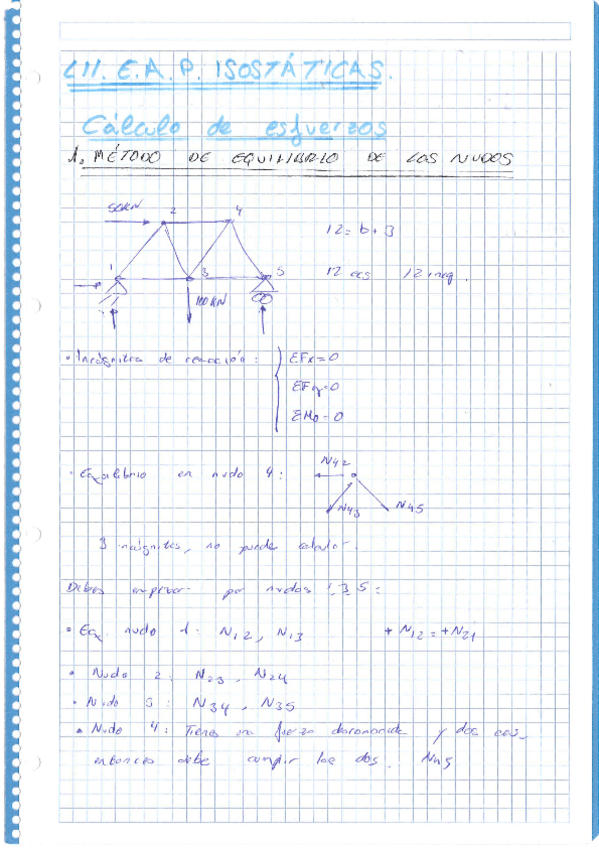 L11. E.A.P. ISOSTÁTICAS.
Cálculo de esfuerzos
1. MÉTODO DE EQUILIBRIO DE LOS NUDOS
50KN 2 4
12 = b + 3
1 3 5
12 ecs 12 incg.
100 KN
• Incógnitas de reacción: ΣFx=0
ΣFy=0
ΣM0=0
• Equilibrio en nudo 4: N42
N43 N45
3 incógnitas, no puedes calcular.
Debes empezar por nudos 1, 3, 5:
• Eq. nudo 1: N12, N13 + N12 = + N21
• Nudo 2: N23, N24
• Nudo 3: N34, N35
• Nudo 4: Tienes una fuerza desconocida y dos ecs,
entonces debe cumplir las dos. N45